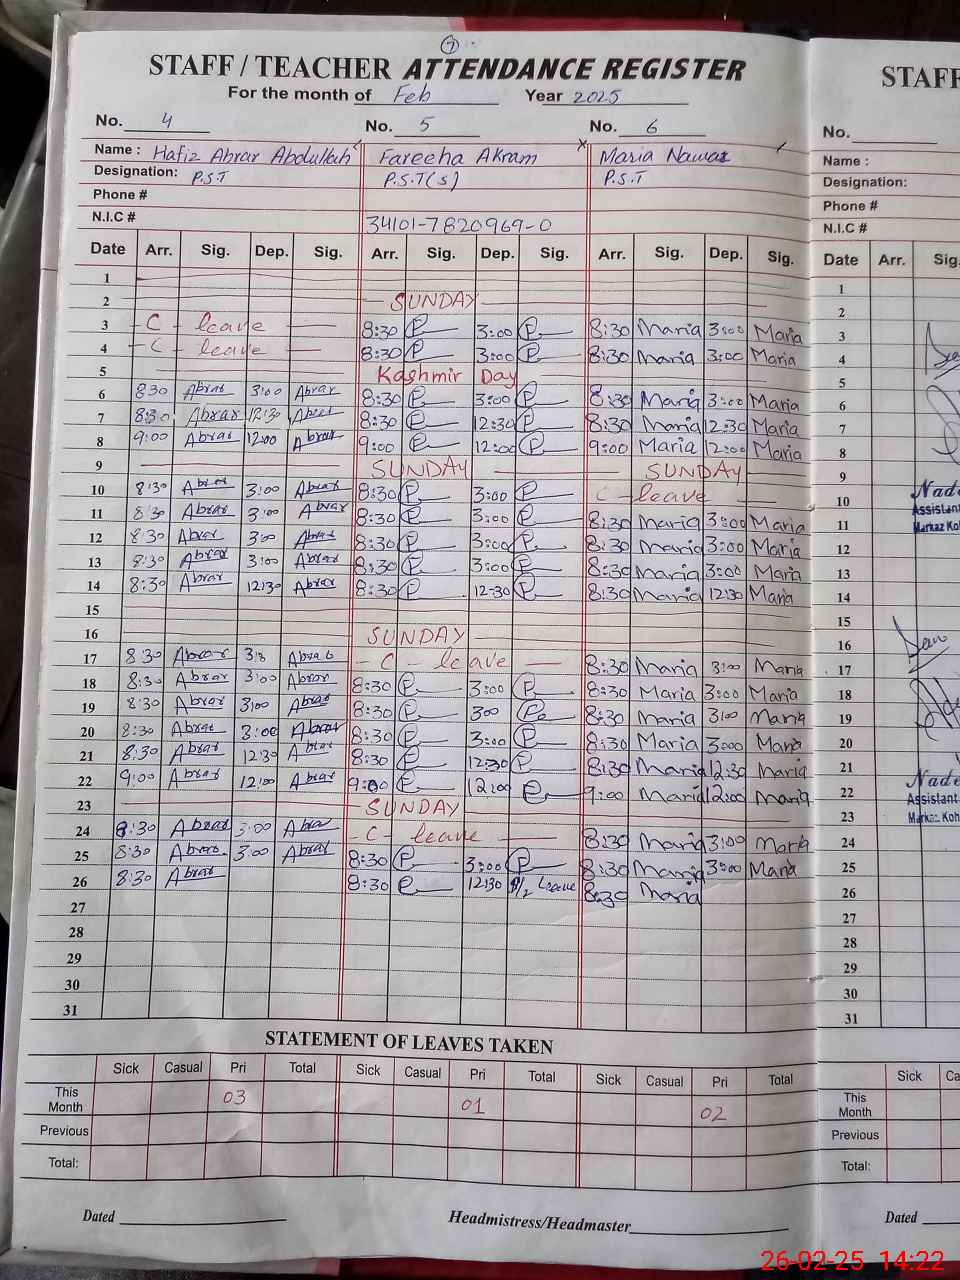 7
STAFF / TEACHER ATTENDANCE REGISTER
STAFF
For the month of Feb Year 2025
No. 4 No. 5 No. 6 No.
Name : Hafiz Abrar Abdullah Fareeha Akram Maria Nawaz Name :
Designation: P.S.T P.S.T(S) P.S.T Designation:
Phone # Phone #
N.I.C # 34101-7820969-0 N.I.C #
Date Arr. Sig. Dep. Sig. Arr. Sig. Dep. Sig. Arr. Sig. Dep. Sig. Date Arr. Sig.
1 1
2 SUNDAY 2
3 - C - leave 8:30 P 3:00 P 8:30 Maria 3:00 Maria 3
4 - C - leave 8:30 P 3:00 P 8:30 Maria 3:00 Maria 4
5 Kashmir Day 5
6 8:30 Abrar 3:00 Abrar 8:30 P 3:00 P 8:30 Maria 3:00 Maria 6
7 8:30 Abrar 12:30 Abrar 8:30 P 12:30 P 8:30 Maria 12:30 Maria 7
8 9:00 Abrar 12:00 Abrar 9:00 P 12:00 P 9:00 Maria 12:00 Maria 8
9 SUNDAY SUNDAY 9
10 8:30 Abrar 3:00 Abrar 8:30 P 3:00 P C - leave 10
11 8:30 Abrar 3:00 Abrar 8:30 P 3:00 P 8:30 Maria 3:00 Maria 11
12 8:30 Abrar 3:00 Abrar 8:30 P 3:00 P 8:30 Maria 3:00 Maria 12
13 8:30 Abrar 3:00 Abrar 8:30 P 3:00 P 8:30 Maria 3:00 Maria 13
14 8:30 Abrar 12:30 Abrar 8:30 P 12:30 P 8:30 Maria 12:30 Maria 14
15 15
16 SUNDAY 16
17 8:30 Abrar Abrar - C - leave 8:30 Maria 3:00 Maria 17
18 8:30 Abrar 3:00 Abrar 8:30 P 3:00 P 8:30 Maria 3:00 Maria 18
19 8:30 Abrar 3:00 Abrar 8:30 P 300 P 8:30 Maria 3:00 Maria 19
20 8:30 Abrar 3:00 Abrar 8:30 P 3:00 P 8:30 Maria 3:00 Maria 20
21 8:30 Abrar 12:30 Abrar 8:30 P 12:30 P 8:30 Maria 12:30 Maria 21
22 9:00 Abrar 12:00 Abrar 9:00 P 12:00 P 9:00 Maria 12:00 Maria 22
23 SUNDAY 23
24 8:30 Abrar 3:00 Abrar - C - leave 8:30 Maria 3:00 Maria 24
25 8:30 Abrar 3:00 Abrar 8:30 P 3:00 P 8:30 Maria 3:00 Maria 25
26 8:30 Abrar 8:30 P 12:30 1/2 leave 8:30 Maria 26
27 27
28 28
29 29
30 30
31 31
Assistant
Markaz Koh
Assistant
Markaz Koh
STATEMENT OF LEAVES TAKEN
Sick Casual Pri Total Sick Casual Pri Total Sick Casual Pri Total Sick Ca
This Month 03 01 02 This Month
Previous Previous
Total: Total:
Dated Headmistress/Headmaster Dated
26-02-25 14:22